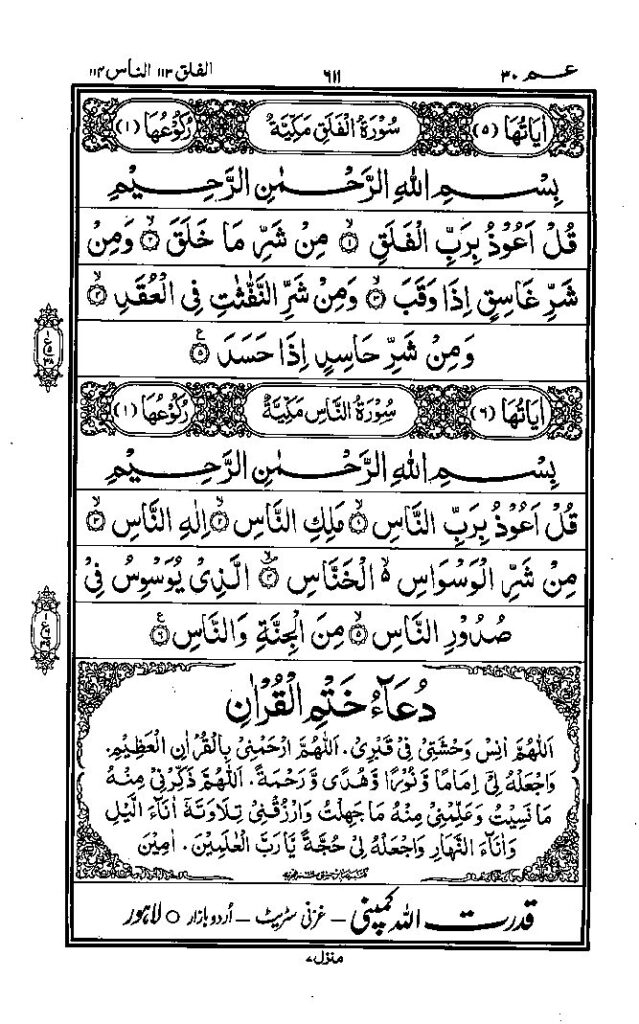 عـــم ٣٠ ٦١١ الفلق ١١٣ الناس ١١٤
اٰيَاتُهَا (٥) سُوْرَةُ الْفَلَقِ مَكِّيَّةٌ رُكُوْعُهَا (١)
بِسْمِ اللّٰهِ الرَّحْمٰنِ الرَّحِيْمِ
قُلْ اَعُوْذُ بِرَبِّ الْفَلَقِ ۙ﴿١﴾ مِنْ شَرِّ مَا خَلَقَ ۙ﴿٢﴾ وَمِنْ
شَرِّ غَاسِقٍ اِذَا وَقَبَ ۙ﴿٣﴾ وَمِنْ شَرِّ النَّفّٰثٰتِ فِى الْعُقَدِ ۙ﴿٤﴾
وَمِنْ شَرِّ حَاسِدٍ اِذَا حَسَدَ ﴿٥﴾ ع
اٰيَاتُهَا (٦) سُوْرَةُ النَّاسِ مَكِّيَّةٌ رُكُوْعُهَا (١)
بِسْمِ اللّٰهِ الرَّحْمٰنِ الرَّحِيْمِ
قُلْ اَعُوْذُ بِرَبِّ النَّاسِ ۙ﴿١﴾ مَلِكِ النَّاسِ ۙ﴿٢﴾ اِلٰهِ النَّاسِ ۙ﴿٣﴾
مِنْ شَرِّ الْوَسْوَاسِ ۙ۬ الْخَنَّاسِ ۪ۙ﴿٤﴾ الَّذِىْ يُوَسْوِسُ فِىْ
صُدُوْرِ النَّاسِ ۙ﴿٥﴾ مِنَ الْجِنَّةِ وَالنَّاسِ ﴿٦﴾ ع
دُعَآءُ خَتْمِ الْقُرْاٰنِ
اَللّٰهُمَّ اٰنِسْ وَحْشَتِىْ فِىْ قَبْرِىْ. اَللّٰهُمَّ ارْحَمْنِىْ بِالْقُرْاٰنِ الْعَظِيْمِ.
وَاجْعَلْهُ لِىْ اِمَامًا وَّنُوْرًا وَّهُدًى وَّرَحْمَةً. اَللّٰهُمَّ ذَكِّرْنِىْ مِنْهُ
مَا نَسِيْتُ وَعَلِّمْنِىْ مِنْهُ مَا جَهِلْتُ وَارْزُقْنِىْ تِلَاوَتَهٗ اٰنَآءَ الَّيْلِ
وَاٰنَآءَ النَّهَارِ وَاجْعَلْهُ لِىْ حُجَّةً يَّا رَبَّ الْعٰلَمِيْنَ. اٰمِيْن
قدرت اللہ کمپنی – غزنی سٹریٹ – اُردو بازار ○ لاہور
منزل ۷